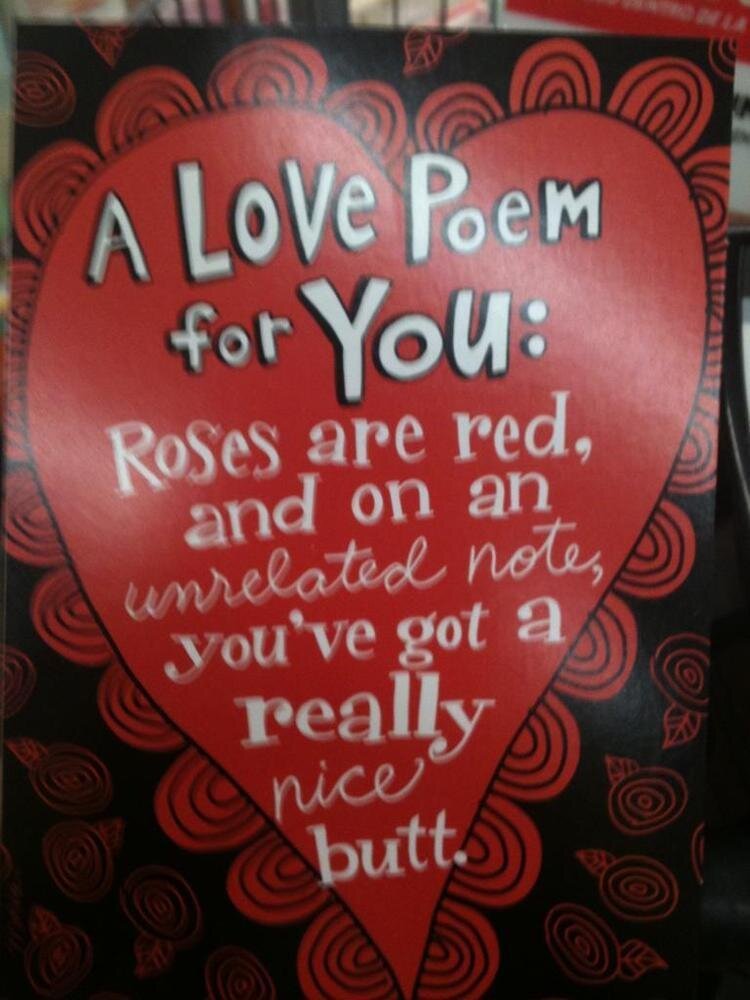 A LoVe Poem
for You:
Roses are red,
and on an
unrelated note,
you've got a
really
nice
butt.